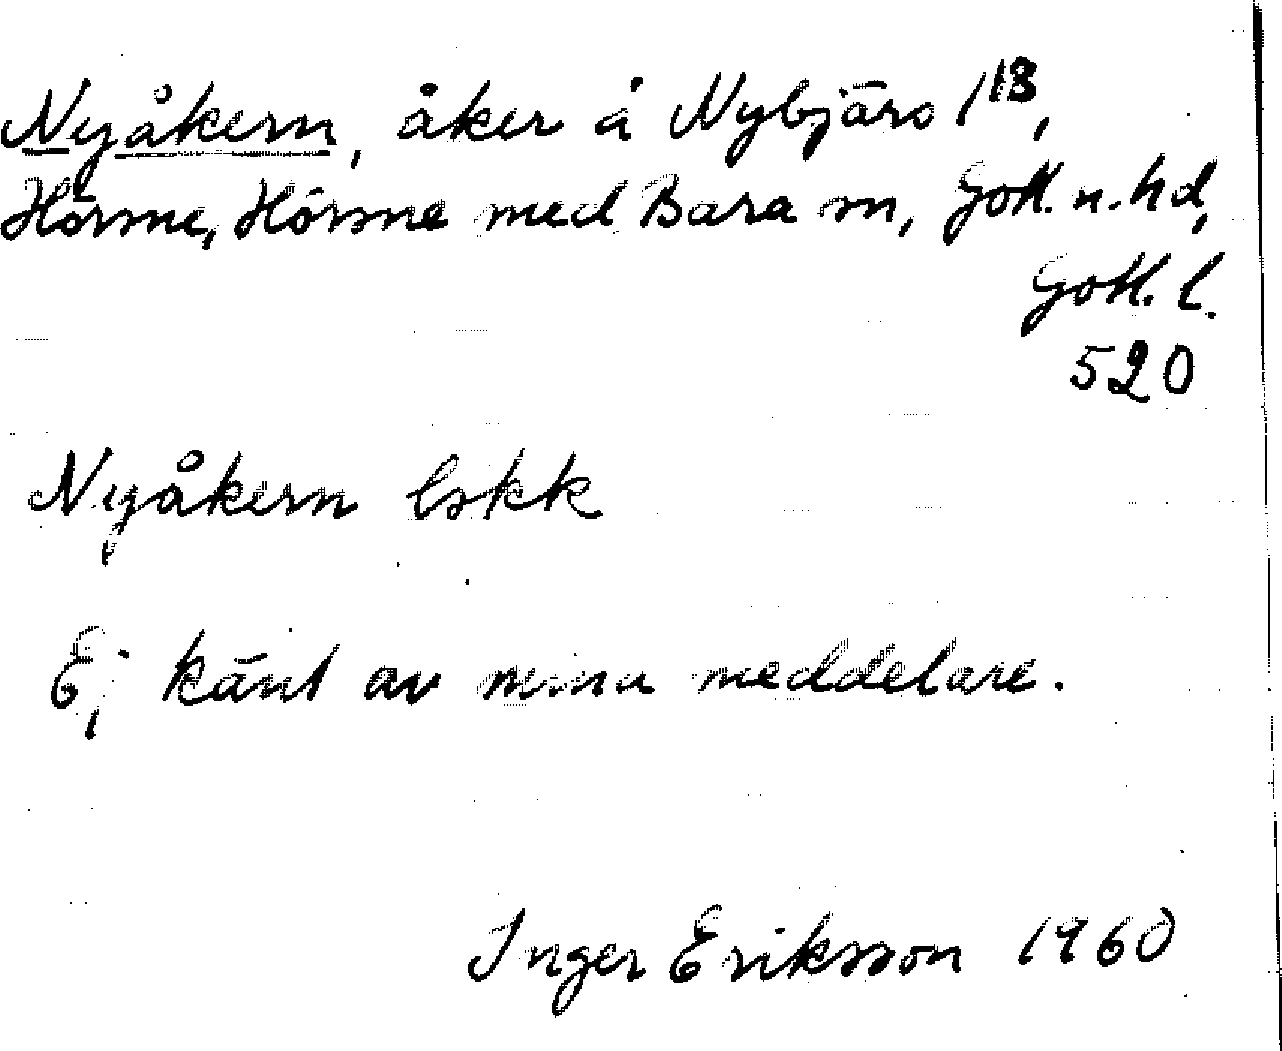 Nyåkern, åker å Nybjärs 1¹³,
Hörsne, Hörsne med Bara sn, Gotl. n. hd,
Gotl. l.
520
Nyåkern lskk
Ej känt av mina meddelare.
Inger Eriksson 1960